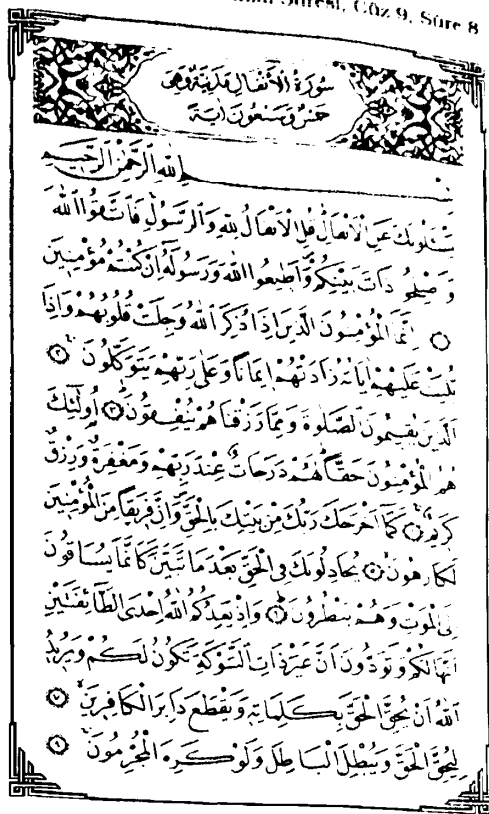 Sûresi, Cüz 9, Sûre 8
سُورَةُ الْاَنْفَالِ مَدَنِيَّةٌ وَهِيَ
خَمْسٌ وَسَبْعُونَ اٰيَةً
اللهِ الرَّحْمٰنِ الرَّحِيمِ
يَسْـَٔلُونَكَ عَنِ الْاَنْفَالِ قُلِ الْاَنْفَالُ لِلّٰهِ وَالرَّسُولِ فَاتَّقُوا اللهَ
وَاَصْلِحُوا ذَاتَ بَيْنِكُمْ وَاَطِيعُوا اللهَ وَرَسُولَهُ اِنْ كُنْتُمْ مُؤْمِنِينَ
اِنَّمَا الْمُؤْمِنُونَ الَّذِينَ اِذَا ذُكِرَ اللهُ وَجِلَتْ قُلُوبُهُمْ وَاِذَا
تُلِيَتْ عَلَيْهِمْ اٰيَاتُهُ زَادَتْهُمْ اِيمَانًا وَعَلٰى رَبِّهِمْ يَتَوَكَّلُونَ ٢
اَلَّذِينَ يُقِيمُونَ الصَّلٰوةَ وَمِمَّا رَزَقْنَاهُمْ يُنْفِقُونَ ٣ اُولٰٓئِكَ
هُمُ الْمُؤْمِنُونَ حَقًّا لَهُمْ دَرَجَاتٌ عِنْدَ رَبِّهِمْ وَمَغْفِرَةٌ وَرِزْقٌ
كَرِيمٌ ٤ كَمَا اَخْرَجَكَ رَبُّكَ مِنْ بَيْتِكَ بِالْحَقِّ وَاِنَّ فَرِيقًا مِنَ الْمُؤْمِنِينَ
لَكَارِهُونَ ٥ يُجَادِلُونَكَ فِي الْحَقِّ بَعْدَ مَا تَبَيَّنَ كَاَنَّمَا يُسَاقُونَ
اِلَى الْمَوْتِ وَهُمْ يَنْظُرُونَ ٦ وَاِذْ يَعِدُكُمُ اللهُ اِحْدَى الطَّٓائِفَتَيْنِ
اَنَّهَا لَكُمْ وَتَوَدُّونَ اَنَّ غَيْرَ ذَاتِ الشَّوْكَةِ تَكُونُ لَكُمْ وَيُرِيدُ
اللهُ اَنْ يُحِقَّ الْحَقَّ بِكَلِمَاتِهِ وَيَقْطَعَ دَابِرَ الْكَافِرِينَ ٧
لِيُحِقَّ الْحَقَّ وَيُبْطِلَ الْبَاطِلَ وَلَوْ كَرِهَ الْمُجْرِمُونَ ٨